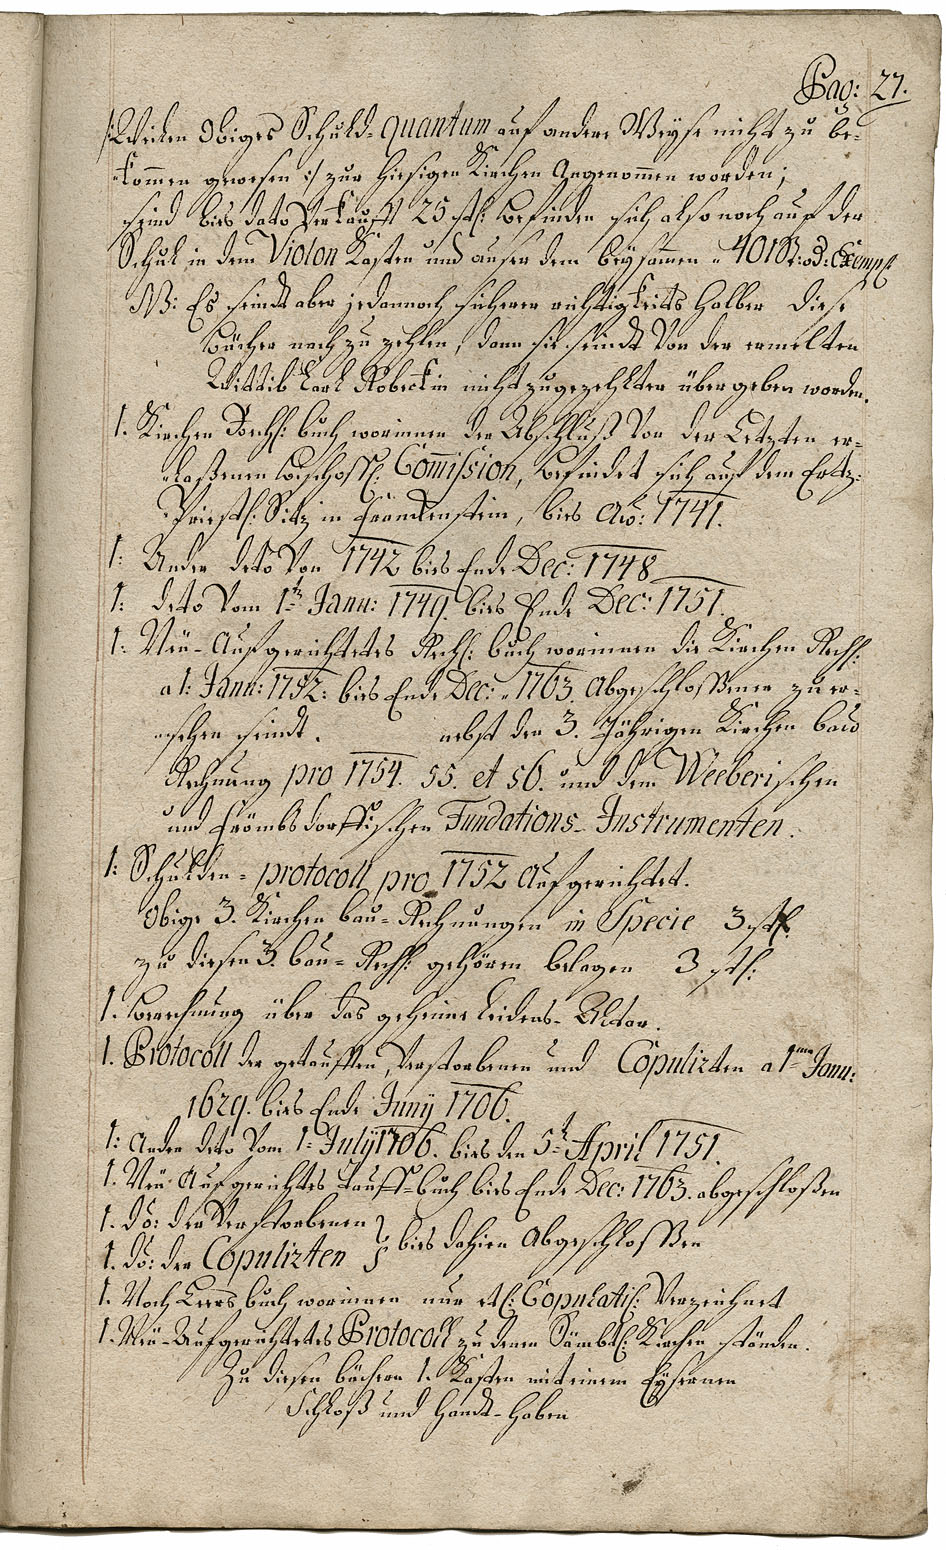 Pag: 27.
/: Weilen Obiges Schuld-quantum auf andere Weyse nicht zu be-
kommen gewesen :/ zur hiesigen Kirchen angenommen worden;
seind bis dato Verkaufft 25 stk: befinden sich also noch auf der
Schul in dem Violon Kasten und auser dem beysammen 401 Exempl
NB: Es seindt aber jedannoch sicherer richtigkeits halber diese
Bücher nach zu zehlen, dann sie seindt Von der ermelten
Wittib Carl Robeckin nicht zugezehlter übergeben worden.
1. Kirchen Rechs: buch worinnen der Abschluß Von der Letzten er-
laßenen bischoffl: Commission, befindet sich auf dem Ertz-
Priestl: Sitz in Franckenstein, bies Ao: 1741.
1: Ander deto Von 1742 bies Ende Dec: 1748
1: deto Vom 1t Janu: 1749. bies Ende Dec: 1751.
1: Neu-Aufgerichtetes Rechs: buch worinnen die Kirchen Rechs:
a 1: Janu: 1752: bies Ende Dec: 1763 Abgeschloßener zu er-
sehen seindt. nebst den 3. Jährigen Kirchen bau
Rechnung pro 1754. 55. et 56. und dem Weeberischen
und Frömbsdorffischen Fundations-Instrumenten.
1: Schulden-protocoll pro 1752 Aufgerichtet.
Obige 3. Kirchen bau-Rechnungen in Specie 3 stk:
zu diesen 3. bau-Rechs: gehören belagen 3 stk:
1. berechnung über das geheime Leidens-Altar.
1. Protocoll der getaufften, Verstorbenen und Copulirten a 1ma Janu:
1629. bies Ende Juny 1706.
1: Ander deto Vom 1 July 1706. bies den 5t April 1751.
1. Neu Aufgerichtes Tauff-buch bies Ende Dec: 1763. abgeschloßen
1. do: der Verstorbenen
1. do: der Copulirten } bies dahien Abgeschloßen
1. Noch Leers buch worinnen nur etl: Copulatis: Verzeichnet
1. Neu-Aufgerichtetes Protocoll zu denen Sämbtl: Kirchen ständen.
Zu diesen büchern 1. Kasten mit einem Eysernen
Schloß und Handt-haben